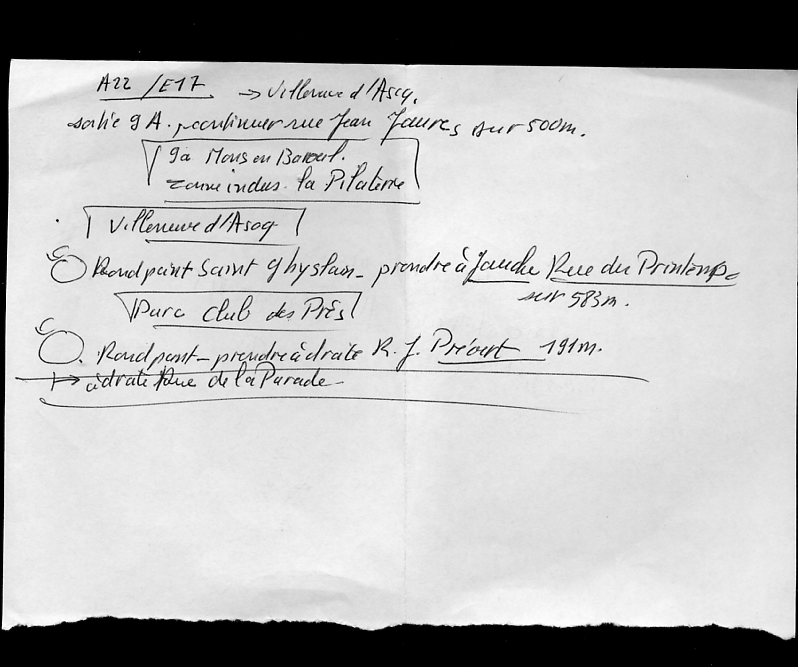 A22 /E17 → Villeneuve d'Ascq.
sortie 9A. continuer rue Jean Jaures sur 500m.
9a Mons en Baroeul.
zone indus. la Pilaterie
Villeneuve d'Ascq
Rond point Saint Ghyslain - prendre à gauche Rue du Printemps
sur 583m.
Parc Club des Prés
Rond point - prendre à droite R. J. Prévert 191m.
à droite Rue de la Parade -